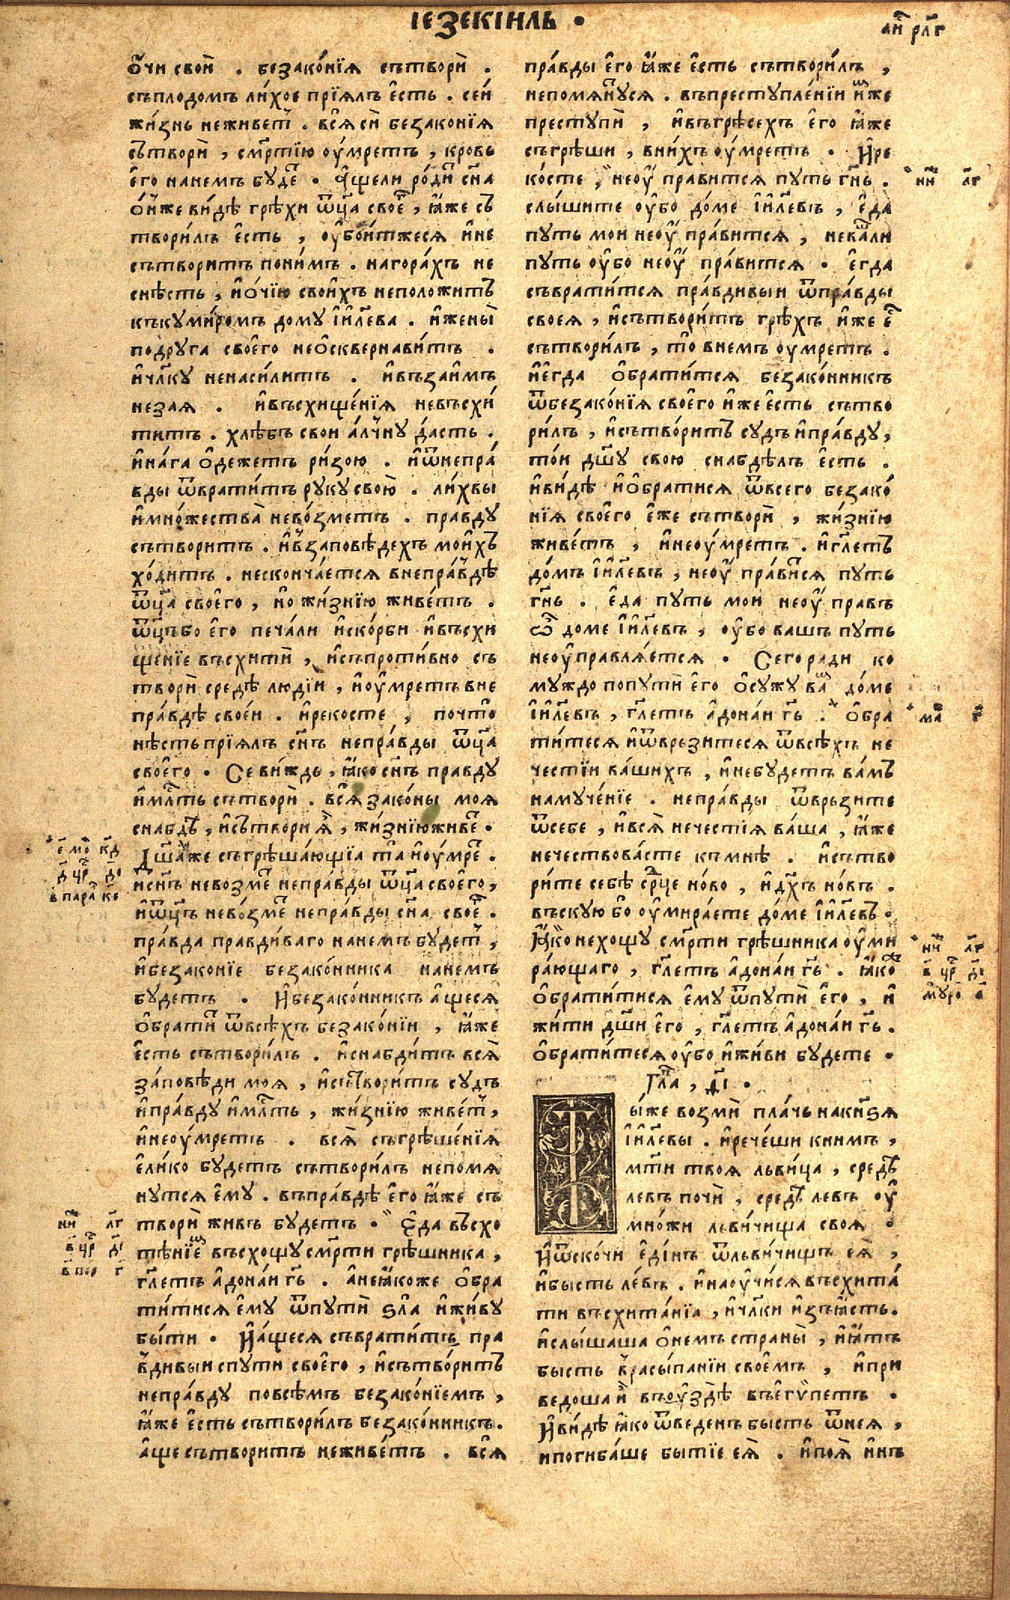 ІЕЗЕКІИЛЬ •
л҃г
ѻ҆́чи свои̑ . безако́нїѧ сътвори̑ .
съплодомъ ли́хое прїѧлъ є҆сть . сей
жи́знь неживет̾ . всѧ̀ сїѝ безаконїѧ
сътвори̑ , см҃ртїю оу҆́мретъ , кровь
є҆го нанемъ буде҇ . А҆щели ро́ди̑ сн҃а
творилъ є҆сть , оу҆бои́тжесѧ и҆не
сътворитъ пони́мъ . нагора́хъ не
снѣсть , и҆ѻ҆́чїю свои́хъ неположитъ
къкуми́ромъ дому і҆и҃лева . и҆жены̀
подруга своего̑ неѡ҆сквернавитъ .
и҆чл҃ку ненаси́литъ . и҆въза́имъ
незаѧ . и҆въсхище́нїѧ невъсхи́
титъ . хлѣбъ свои а҆́лчну да́сть .
и҆на́га ѻ҆дежетъ ри́зою . и҆ѿнепра́
вды ѿвратитъ руку свою̀ . ли́хвы
и҆мно́жества̀ нево́зметъ . пра́вду
сътворитъ . и҆в̾заповѣдехъ мои́хъ
хо́дитъ . несконча́етсѧ внепра́вдѣ
ѿц҃а своего̑ , но жи́знїю живе́тъ .
ѿц҃ъбо є҆го печа́ли и҆ско́рби и҆въсхи
щенїе въсхити̑ , и҆съпроти́вно съ
твори̑ средѣ люді́и , и҆оу҆́мретъ вне
пра́вдѣ свое́и . и҆рекосте , почто̑
нѣсть прїѧлъ сн҃ъ непра́вды ѿц҃а
своего̑ . Се ви́ждь , ꙗ҆́ко сн҃ъ пра́вду
и҆мл҃ть сътвори̑ . всѧ̀ зако́ны моѧ
снабдѣ̀ , и҆сътвори ѧ҆̀ , жи́знїю живе҇ .
Дш҃а́же съгрѣша́ющїа та̑ и҆оу҆́мре҇ .
и҆сн҃ъ невозме҇ непра́вды ѿц҃а своего̑ ,
и҆ѿц҃ъ нево́зме҇ непра́вды сн҃а свое҇ .
пра́вда пра́вди́ваго нанемъ буде́т̾ ,
и҆безаконїе безако́нника нанемъ
будетъ . И҆безако́нникъ а҆́щесѧ
ѻ҆брати̑ ѿвсѣхъ безако́нїи , ꙗ҆́же
є҆сть сътвори́лъ . и҆снабдитъ всѧ̀
за́повѣди моѧ , и҆сътвори́тъ су́дъ
и҆пра́вду и҆мл҃ть , жи́знїю живе́т̾ ,
и҆неоу҆́мретъ . всѧ̀ съгрѣше́нїѧ
є҆ли́ко будетъ сътвори́лъ непомѧ
нутсѧ є҆му . въпра́вдѣ є҆го ꙗ҆́же съ
твори̑ живъ будетъ . Е҆да въсхо
тѣнїе въсхощу см҃рти грѣшника ,
гл҃етъ а҆дона́и гь҃ . а҆неꙗ҆́коже ѻ҆бра
ти́тисѧ є҆му ѿпути̑ ѕла̑ и҆жи́ву
бы́ти . И҆а҆́щесѧ съврати́тъ пра
в̾дивыи спути своего̑ , и҆сътвори́тъ
непра́вду повсѣмъ безако́нїемъ ,
ꙗ҆́же є҆сть сътвори́лъ безако́нникъ .
а҆ще сътвори́тъ неживе́тъ . всѧ̀
пра́вды є҆го ꙗ҆́же є҆сть сътвори́лъ ,
непомѧну́сѧ . въпреступле́нїи и҆́же
преступи̑ , и҆въгрѣсехъ є҆го ꙗ҆́же
съгрѣши , вни́хъ оу҆́мретъ . И҆ре
косте , неоу҆ пра́витсѧ путь гн҃ь .
слы́шите оу҆́бо до́ме і҆и҃левъ , є҆да̀
путь мои неоу҆ пра́витсѧ , нева́ли
путь оу҆́бо неоу҆ пра́витсѧ . є҆гда
съврати́тсѧ пра́вдивыи ѿпра́вды
своеѧ , и҆сътвори́тъ грѣхъ и҆́же є҆҇
сътвори́лъ , то̑ внемъ оу҆мретъ .
и҆є҆гда ѻ҆брати́тсѧ безако́нникъ
ѿбезако́нїѧ своего̑ и҆́же є҆сть сътво
ри́лъ , и҆сътвори́тъ су́дъ и҆пра́вду ,
то́и дш҃у свою снабдѣлъ є҆сть .
и҆ви́дѣ и҆ѻ҆бра́тисѧ ѿвсего̑ безако́
нїѧ своего̑ є҆́же сътвори̑ , жи́знїю
живе́тъ , и҆неоу҆́мретъ . и҆гл҃етъ
до́мъ і҆и҃левъ , неоу҆ пра́ви҇сѧ путь
гн҃ь . є҆да̀ путь мои неоу҆ правъ
ѽ до́ме і҆и҃левъ , оу҆́бо вашъ путь
неоу҆правлѧ́етсѧ . Сегора́ди ко
му́ждо попути̑ є҆го ѻ҆сужу ва̑ до́ме
і҆и҃левъ , гл҃етъ а҆дона́и гь҃ . ѻ҆бра
ти́тесѧ и҆ѿврьзи́тесѧ ѿвсѣхъ не
честїи ва́шихъ , и҆небудетъ ва́мъ
наму́ченїе . непра́вды ѿврьзите
ѿсебе , и҆всѧ̀ нечестїѧ ва́ша , ꙗ҆́же
нечестова́сте къмнѣ . и҆сътво
ри́те себѣ ср҃це ново , и҆дх҃ъ новъ .
въскую бо оу҆мира́ете до́ме і҆и҃левъ .
Ꙗ҆́ко нехощу см҃рти грѣшника оу҆ми
ра́ющаго , гл҃етъ а҆дона́и гь҃ . ꙗ҆ко
ѻ҆брати́тисѧ є҆му ѿпути̑ є҆го , и҆
жи́ти дш҃и є҆го , гл҃етъ а҆дона́и гь҃ .
ѻ҆брати́тесѧ оу҆́бо и҆жи́ви будете .
Гла҃ , ѳ҃і .
Т
ы́же возми̑ пла́чь накн҃ѕѧ
і҆и҃левы . и҆рече́ши книмъ ,
мт҃и твоѧ льви́ца , средѣ̀
левъ почи̑ , средѣ̀ левъ оу҆
мно́жи льви́чища своѧ .
И҆ѿско́чи є҆ди́нъ ѿльви́чищъ еѧ̀ ,
и҆бысть ле́въ . и҆наоу҆чи́сѧ въсхита́
ти въсхита́нїа , и҆чл҃ки и҆зъꙗ҆́сть .
и҆слы́шаша ѻ҆немъ страны̀ , и҆ꙗ҆́тъ
бысть в̾расы́панїи свое́мъ , и҆при
ведоша и҆̀ въоу҆здѣ въегѵ́петъ .
И҆ви́дѣ ꙗ҆́ко ѿведенъ бысть ѿнеѧ ,
и҆погиба́ше бытїе еѧ̀ . и҆поѧ̀ и҆нъ